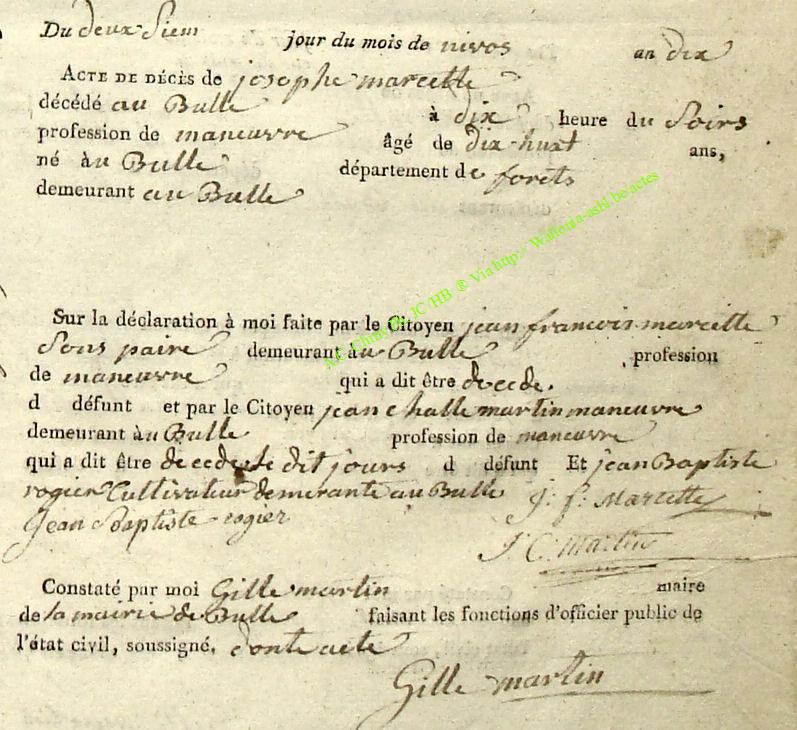 Du deux Siem jour du mois de nivos an dix
ACTE DE DÉCÈS de josephe marcette
décédé au Bulle à dix heure du Soirs
profession de maneuvre âgé de dix huit ans,
né àu Bulle département de forets
demeurant au Bulle
Sur la déclaration à moi faite par le Citoyen jean francois marcette
Sons paire demeurant àu Bulle profession
de maneuvre qui a dit être decede.
d défunt et par le Citoyen jean challe martin maneuvre
demeurant àu Bulle profession de maneuvre
qui a dit être decede le dit jours d défunt Et jean Baptiste
rogier Cultivateur demerante au Bulle J. f. Marcette
Jean Baptiste rogier
J. C. Martin
Constaté par moi Gille martin maire
de la mairie de Bulle faisant les fonctions d'officier public de
l'état civil, soussigné. donte acte
Gille martin
JC HB ® Via http:// Wallonia-asbl.be/actes